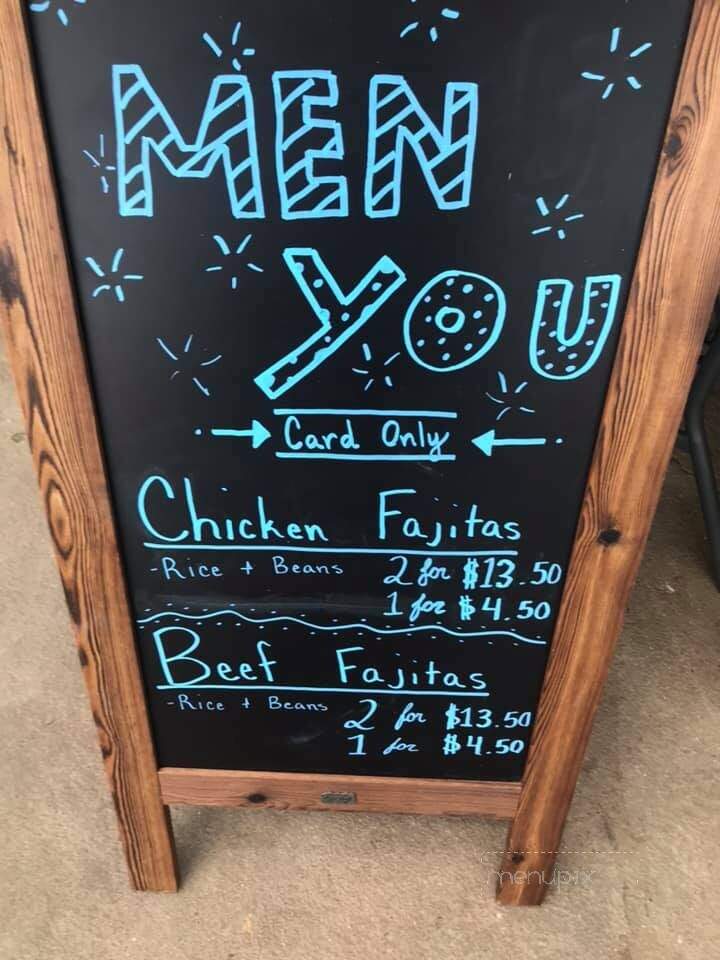 MEN
YOU
Card Only
Chicken Fajitas
-Rice + Beans 2 for $13.50
1 for $4.50
Beef Fajitas
-Rice + Beans 2 for $13.50
1 for $4.50
menupix